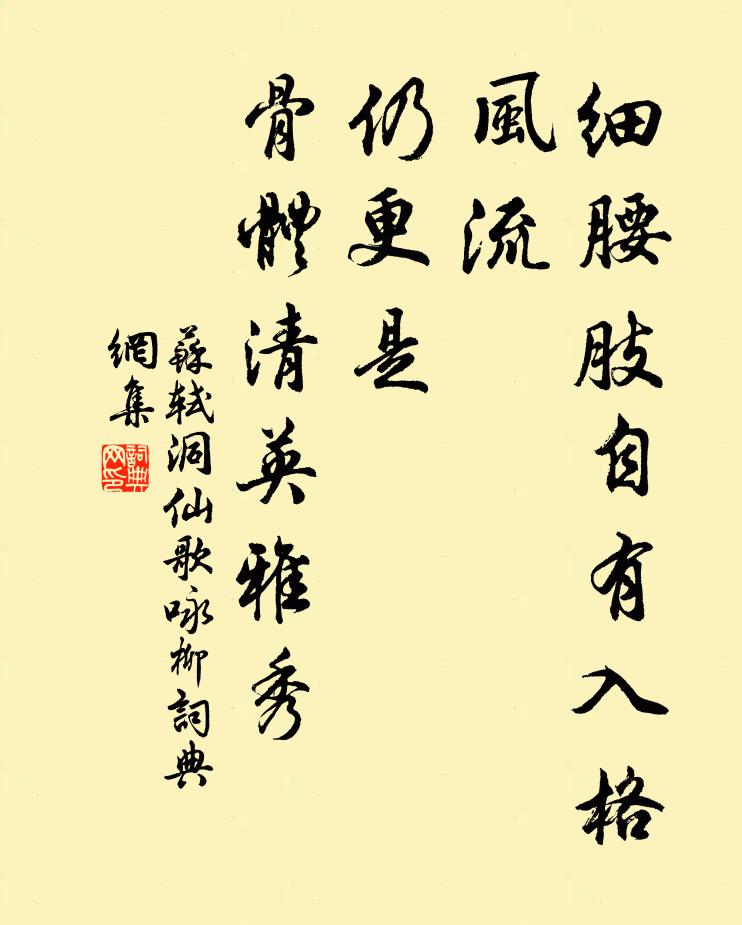 細腰肢自有入格
風流
仍更是
骨體清英雅秀
蘇軾洞仙歌咏柳詞典
網集
詞典网印